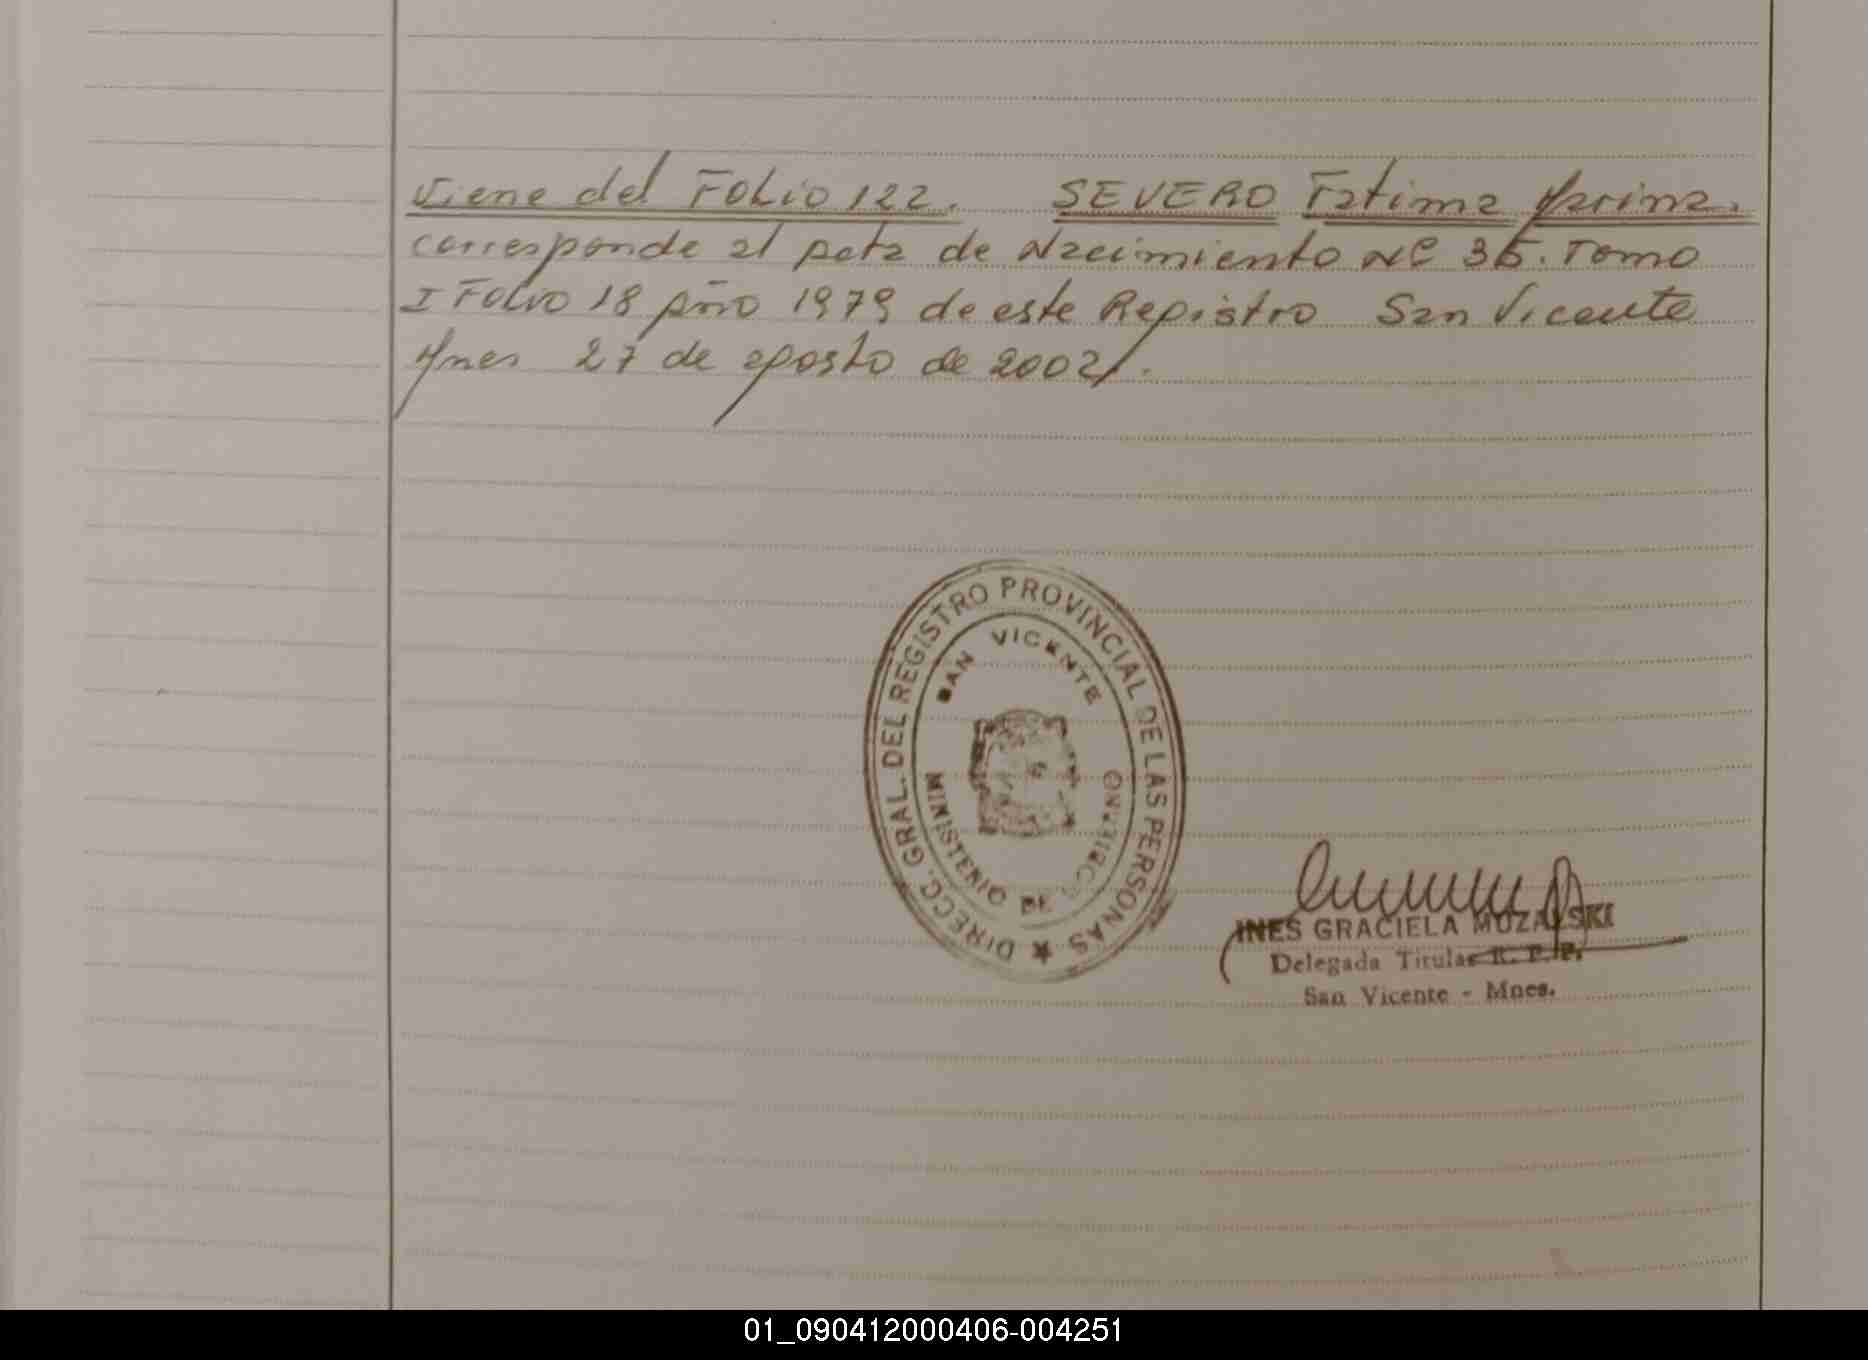 Viene del Folio 122. SEVERO Fatima Marina.
corresponde al Acta de Nacimiento Nº 35. Tomo
I Folio 18 Año 1979 de este Registro San Vicente
Mnes 27 de agosto de 2002.
DIRECC. GRAL. DEL REGISTRO PROVINCIAL DE LAS PERSONAS
SAN VICENTE
MINISTERIO DE GOBIERNO
INES GRACIELA MUZALSKI
Delegada Titular R. P. P.
San Vicente - Mnes.
01_090412000406-004251